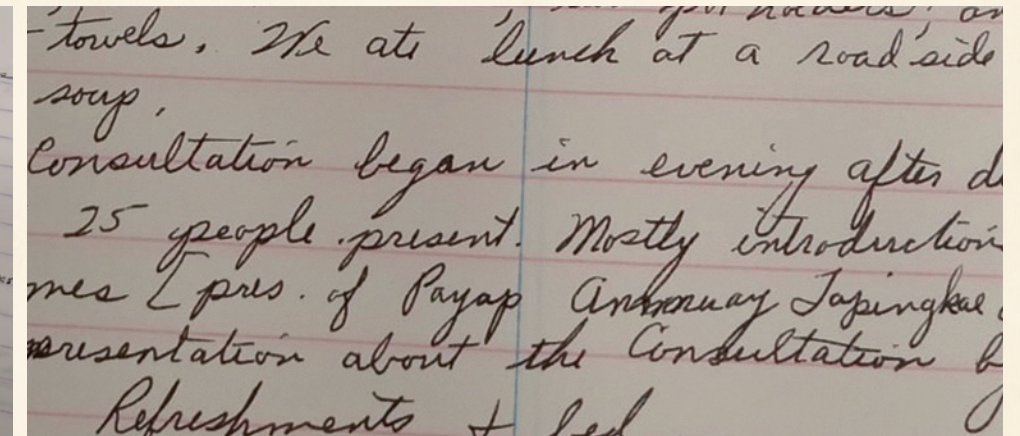 towels. We ate lunch at a road side
soup.
Consultation began in evening after
25 people present. Mostly introduction
mes [pres. of Payap Amnuay Tapingkae
presentation about the Consultation
Refreshments + bed